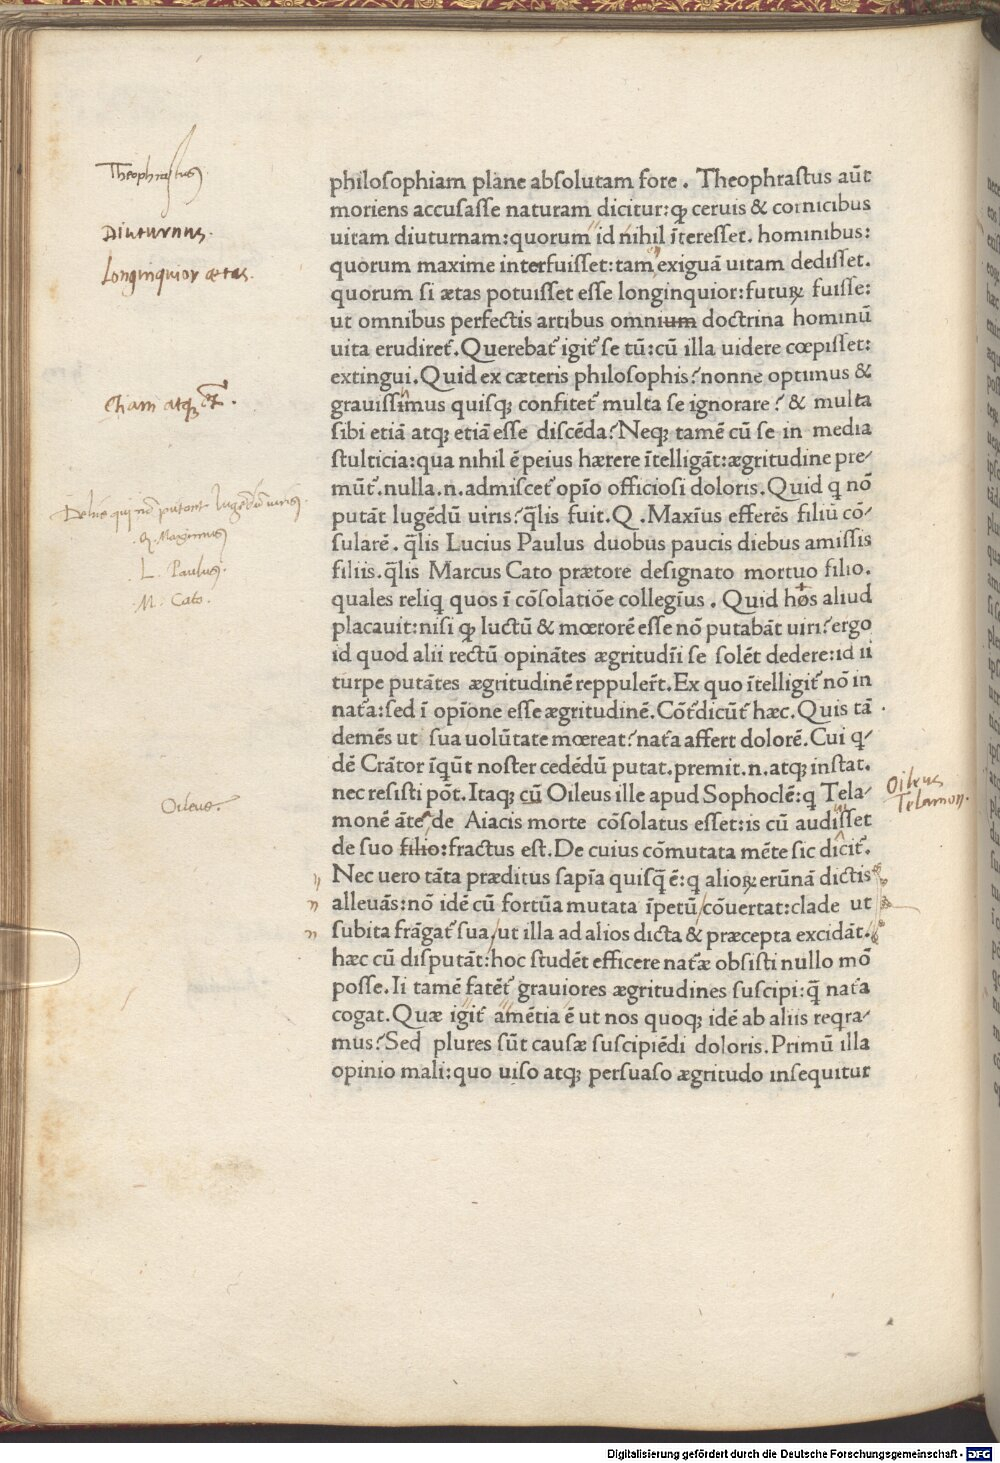 Theophrastus
Diuturnus.
Longinquior ætas.
Etiam atqꝫ etiã.
De his qui nõ putant lugẽdũ uiris
Q. Maximus
L. Paulus.
M. Cato.
Oileus.
philoſophiam plane abſolutam fore. Theophraſtus aũt
moriens accuſaſſe naturam dicitur:ꝙ ceruis & cornicibus
uitam diuturnam:quorum id nihil ĩtereſſet. hominibus:
quorum maxime interfuiſſet:tam exiguã uitam dediſſet.
quorum ſi ætas potuiſſet eſſe longinquior:futuꝝ fuiſſe:
ut omnibus perfectis artibus omnium doctrina hominũ
uita erudiret᷑. Querebat᷑ igit᷑ ſe tũ:cũ illa uidere cœpiſſet:
extingui. Quid ex cæteris philoſophis? nonne optimus &
grauiſſimus quiſqꝫ confitet᷑ multa ſe ignorare? & multa
ſibi etiã atqꝫ etiã eſſe diſcẽda? Neqꝫ tamẽ cũ ſe in media
ſtulticia:qua nihil ẽ peius hærere ĩtelligãt:ægritudine pre⸗
mũt᷑. nulla .n. admiſcet᷑ opĩo officioſi doloris. Quid q nõ
putãt lugẽdũ uiris? q̃lis fuit .Q. Maxĩus efferẽs filiũ cõ⸗
ſularẽ. q̃lis Lucius Paulus duobus paucis diebus amiſſis
filiis. q̃lis Marcus Cato prætore deſignato mortuo filio.
quales reliq quos ĩ cõſolatiõe collegĩus. Quid hos aliud
placauit:niſi ꝙ luctũ & mœrorẽ eſſe nõ putabãt uiri? ergo
id quod alii rectũ opinãtes ægritudĩi ſe ſolẽt dedere:id ii
turpe putãtes ægritudinẽ reppuler̃t. Ex quo ĩtelligit᷑ nõ in
nat᷑a:ſed ĩ opĩone eſſe ægritudinẽ. Cõt᷑dicũt᷑ hæc. Quis tã
demẽs ut ſua uolũtate mœreat? nat᷑a affert dolorẽ. Cui q⸗
dẽ Crãtor ĩqũt noſter cedẽdũ putat. premit .n. atqꝫ inſtat.
nec reſiſti põt. Itaqꝫ cũ Oileus ille apud Sophoclẽ:q Tela⸗
monẽ ãte de Aiacis morte cõſolatus eſſet:is cũ audiſſet
de ſuo filio:fractus eſt. De cuius cõmutata mẽte ſic dicit᷑.
Nec uero tãta præditus ſapĩa quiſq̃ ẽ:q alioꝝ erũnã dictis
alleuãs:nõ idẽ cũ fortũa mutata ĩpetũ cõuertat:clade ut
ſubita frãgat᷑ ſua, ut illa ad alios dicta & præcepta excidãt.
hæc cũ diſputãt:hoc ſtudẽt efficere nat᷑æ obſiſti nullo mõ
poſſe. Ii tamẽ fatẽt᷑ grauiores ægritudines ſuſcipi:q̃ nat᷑a
cogat. Quæ igit᷑ amẽtia ẽ ut nos quoqꝫ idẽ ab aliis reqra⸗
mus? Sed plures ſũt cauſæ ſuſcipiẽdi doloris. Primũ illa
opinio mali:quo uiſo atqꝫ perſuaſo ægritudo inſequitur
Oileus
Telamon.
Digitalisierung gefördert durch die Deutsche Forschungsgemeinschaft - DFG